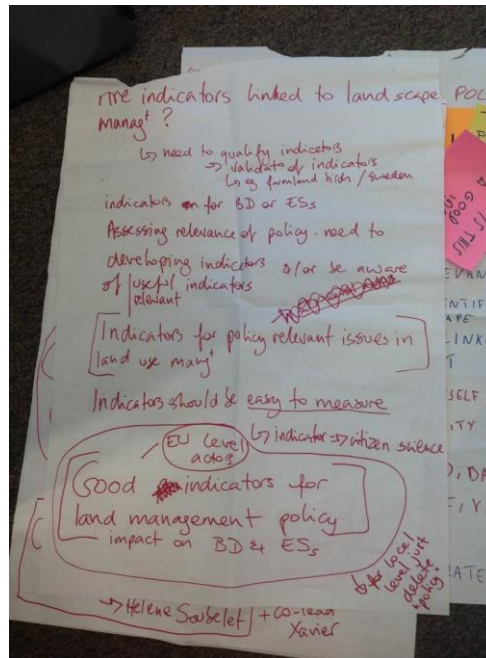 Are indicators linked to landscape
manag^t ?
↳ need to qualify indicators
→ validat° of indicators
↳ eg farmland birds / Sweden
indicators for BD or ESs
Assessing relevance of policy - need to
developing indicators &/or be aware
of useful indicators
relevant
[Indicators for policy relevant issues in
land use mang^t]
Indicators should be easy to measure
↳ indicator → citizen science
EU level
actors
[Good indicators for
land management policy]
impact on BD & ESs
↳ for local
level just
delete
"policy"
→ Hélène Soubelet + co-lead
Xavier
POL
A GOOD
IS THIS
EVAN
NTIF
APE
LINK
T
SELF
ITY
D, DA
F, Y
ATE